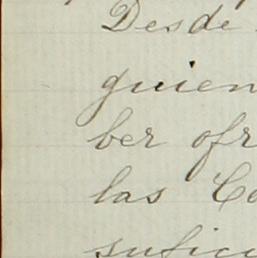 Desde
guien
ber ofr
las Co
sufici